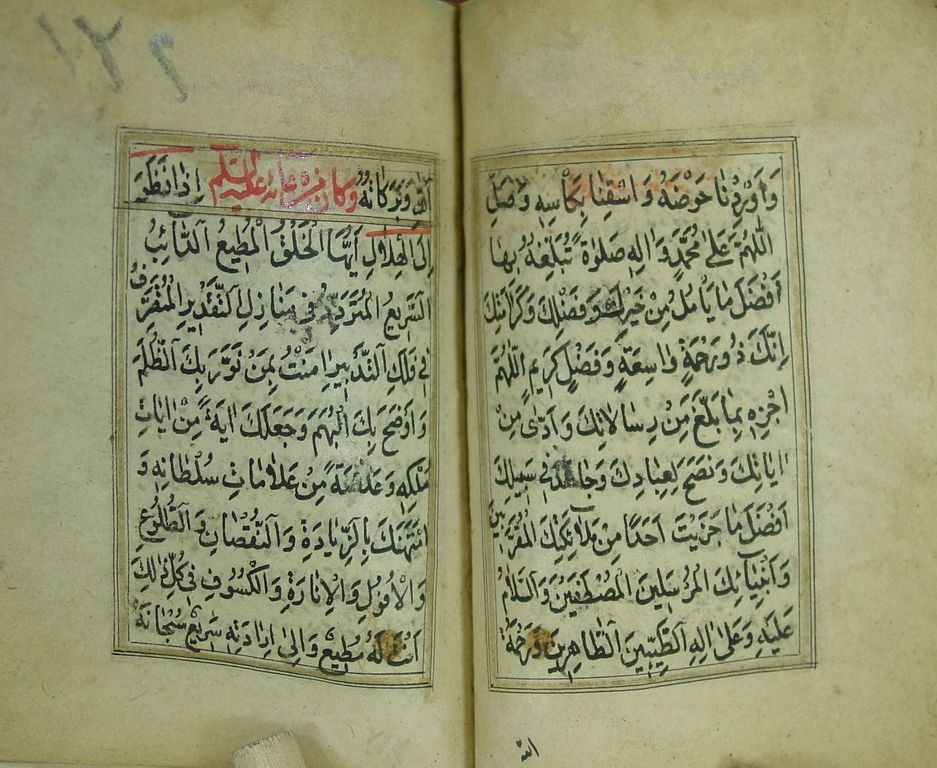 وَاَوْرِدْنا حَوْضَهُ وَاسْقِنا بِكَاْسِهِ وَصَلِّ
اللّٰهُمَّ عَلىٰ مُحَمَّدٍ وَالِهِ صَلوٰةً تُبَلِّغُهُ بِها
اَفْضَلَ ما يَامُلُ مِنْ خَيْرِكَ وَفَضْلِكَ وَكَرٰامَتِكَ
اِنَّكَ ذُورَحْمَةٍ وٰاسِعَةٍ وَفَضْلٍ كَرِيمٍ اَللّٰهُمَّ
اجْزِهِ بِمٰا بَلَّغَ مِنْ رِسٰالاتِكَ وَاَدّىٰ مِنْ
اٰياتِكَ وَنَصَحَ لِعِبادِكَ وَجٰاهَدَ فى سَبِيلِكَ
اَفْضَلَ مٰا جَزَيْتَ اَحَدًا مِنْ مَلآئِكَتِكَ الْمُقَرَّبينَ
وَاَنْبِيآئِكَ الْمُرْسَلينَ الْمُصْطَفَيْنَ وَالسَّلٰامُ
عَلَيْهِ وَعَلىٰ الِهِ الطَّيِّبينَ الطّٰاهِرينَ وَرَحْمَةُ
الله
۱۲۶
اللهِ وَبَرَكاتُهُ وَكانَ مِنْ دُعائِهِ عَلَيْهِ السَّلم اِذا نَظَرَ
اِلَى الْهِلالِ اَيُّهَا الْخَلْقُ الْمُطيعُ الدّائِبُ
السَّريعُ الْمُتَرَدِّدُ فى مَنازِلِ التَّقْديرِ الْمُتَصَرِّفُ
فى فَلَكِ التَّدْبيرِ امَنْتُ بِمَنْ نَوَّرَ بِكَ الظُّلَمَ
وَاَوْضَحَ بِكَ الْبُهَمَ وَجَعَلَكَ ايَةً مِنْ اٰياتِ
مُلْكِهِ وَعَلامَةً مِنْ عَلٰامٰاتِ سُلْطٰانِهِ وَ
امْتَهَنَكَ بِالزِّيٰادَةِ وَالنُّقْصٰانِ وَالطُّلُوعِ
وَالْاُفُولِ وَالْاِنٰارَةِ وَالْكُسُوفِ فى كُلِّ ذٰلِكَ
اَنْتَ لَهُ مُطيعٌ وَاِلىٰ اِرٰادَتِهِ سَريعٌ سُبْحٰانَهُ